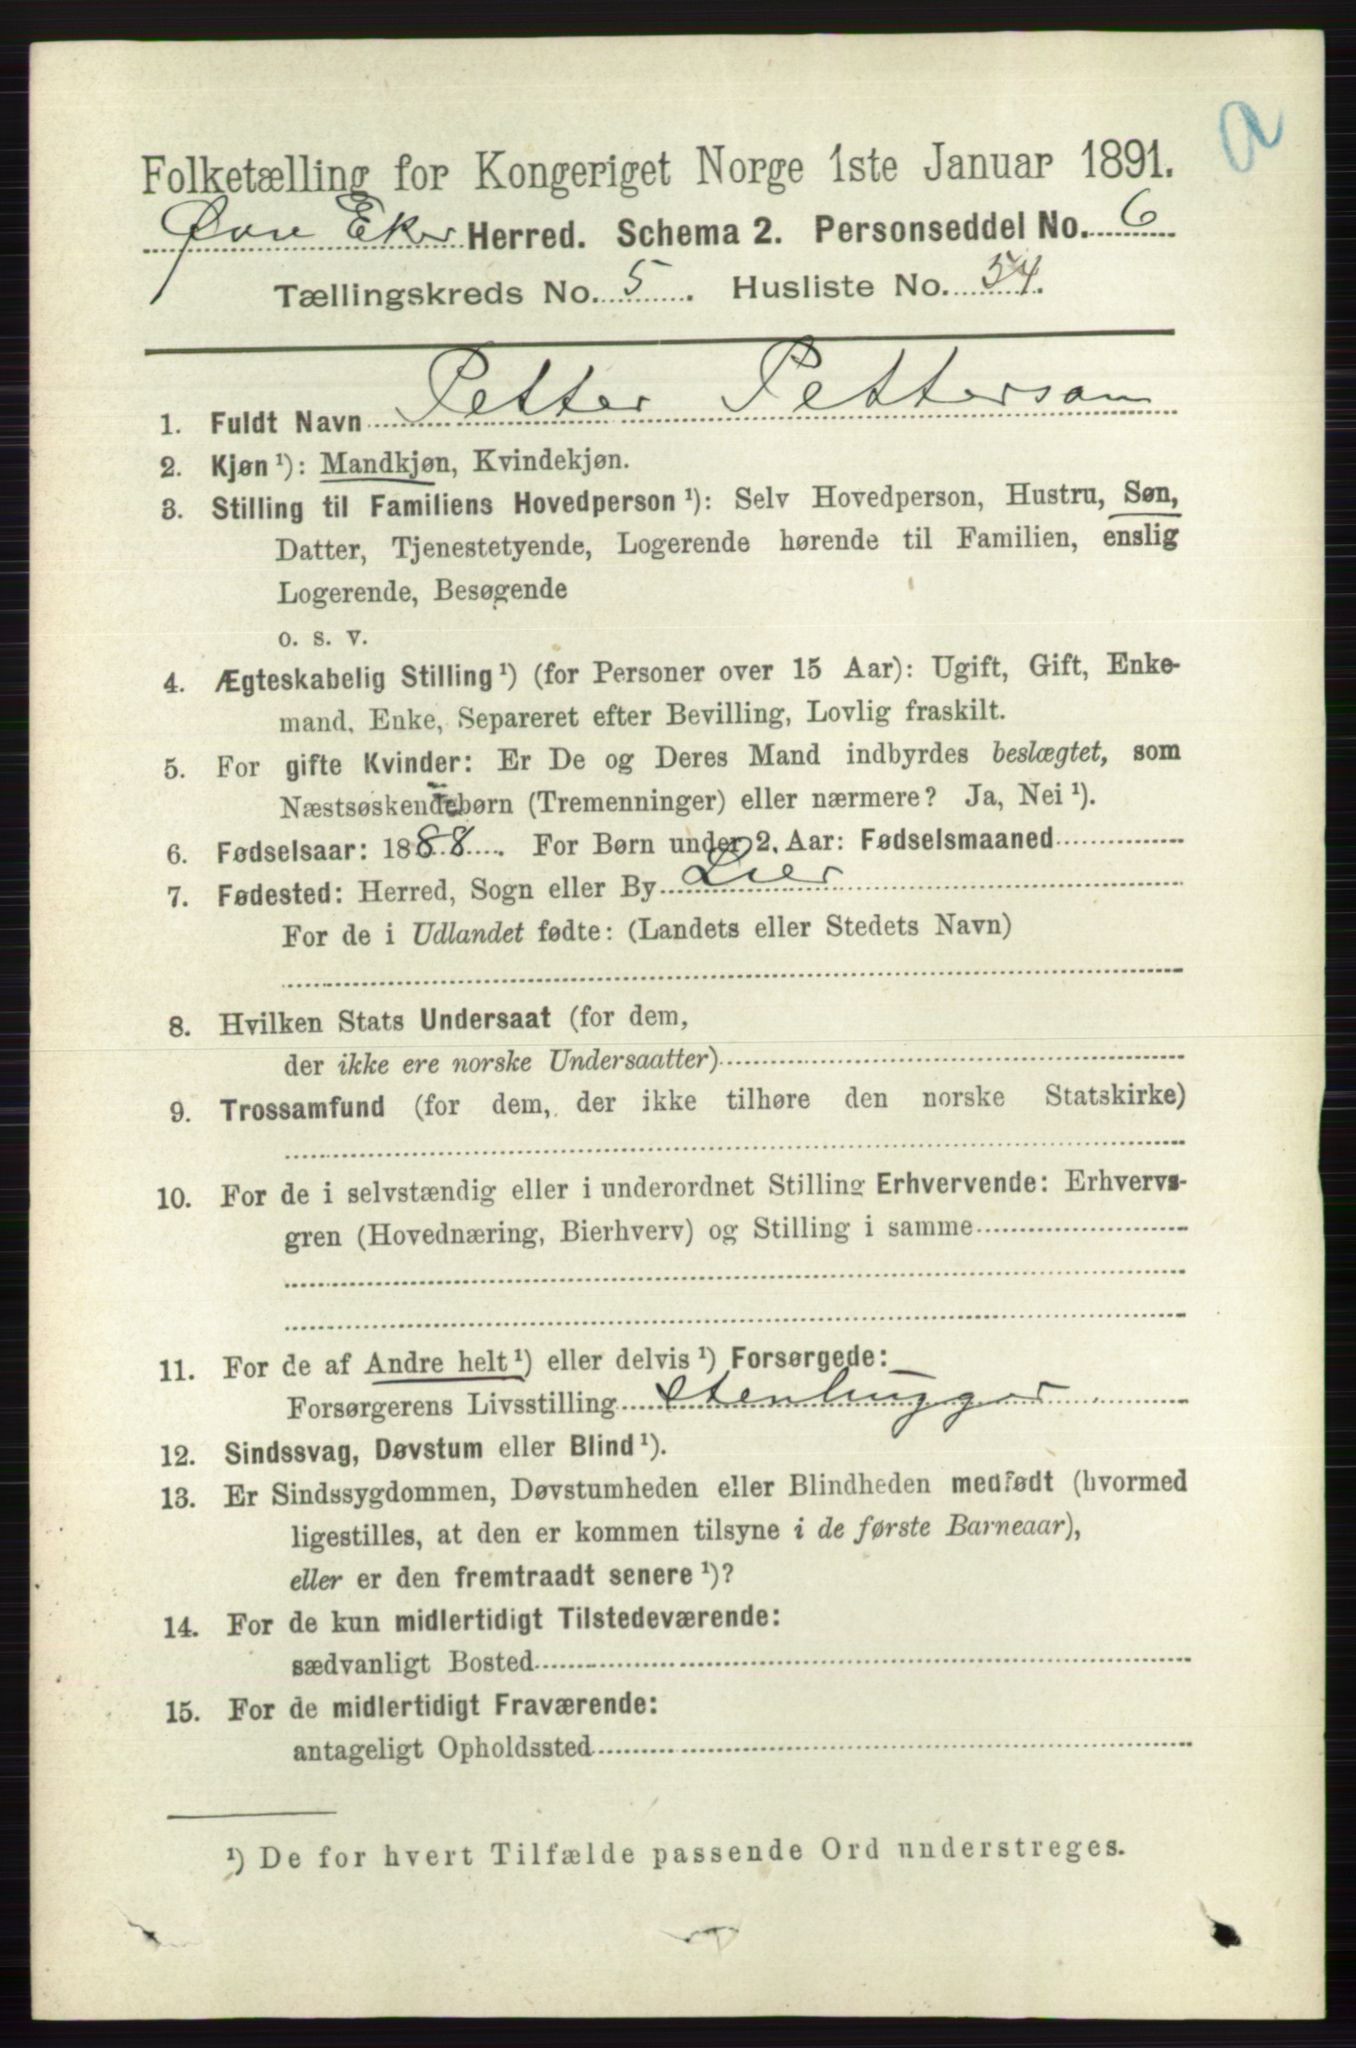 a
Folketælling for Kongeriget Norge 1ste Januar 1891.
Øvre Eker Herred. Schema 2. Personseddel No. 6
Tællingskreds No. 5. Husliste No. 54.
1. Fuldt Navn Petter Pettersom
2. Kjøn ¹): Mandkjøn, Kvindekjøn.
3. Stilling til Familiens Hovedperson ¹): Selv Hovedperson, Hustru, Søn,
Datter, Tjenestetyende, Logerende hørende til Familien, enslig
Logerende, Besøgende
o. s. v.
4. Ægteskabelig Stilling ¹) (for Personer over 15 Aar): Ugift, Gift, Enke-
mand, Enke, Separeret efter Bevilling, Lovlig fraskilt.
5. For gifte Kvinder: Er De og Deres Mand indbyrdes beslægtet, som
Næstsøskendebørn (Tremenninger) eller nærmere? Ja, Nei ¹).
6. Fødselsaar: 1888. For Børn under 2 Aar: Fødselsmaaned
7. Fødested: Herred, Sogn eller By Lier
For de i Udlandet fødte: (Landets eller Stedets Navn)
8. Hvilken Stats Undersaat (for dem,
der ikke ere norske Undersaatter)
9. Trossamfund (for dem, der ikke tilhøre den norske Statskirke)
10. For de i selvstændig eller i underordnet Stilling Erhvervende: Erhvervs-
gren (Hovednæring, Bierhverv) og Stilling i samme
11. For de af Andre helt ¹) eller delvis ¹) Forsørgede:
Forsørgerens Livsstilling Stenhugger
12. Sindssvag, Døvstum eller Blind ¹).
13. Er Sindssygdommen, Døvstumheden eller Blindheden medfødt (hvormed
ligestilles, at den er kommen tilsyne i de første Barneaar),
eller er den fremtraadt senere ¹)?
14. For de kun midlertidigt Tilstedeværende:
sædvanligt Bosted
15. For de midlertidigt Fraværende:
antageligt Opholdssted
¹) De for hvert Tilfælde passende Ord understreges.